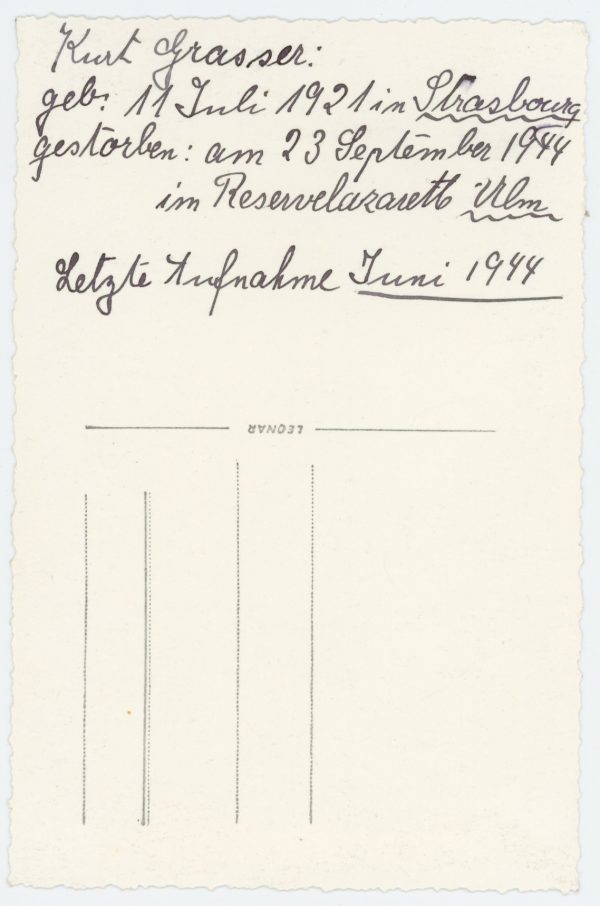 Kurt Grasser:
geb: 11 Juli 1921 in Strasbourg
gestorben: am 23 September 1944
im Reservelazarett Ulm
Letzte Aufnahme Juni 1944
LEONAR